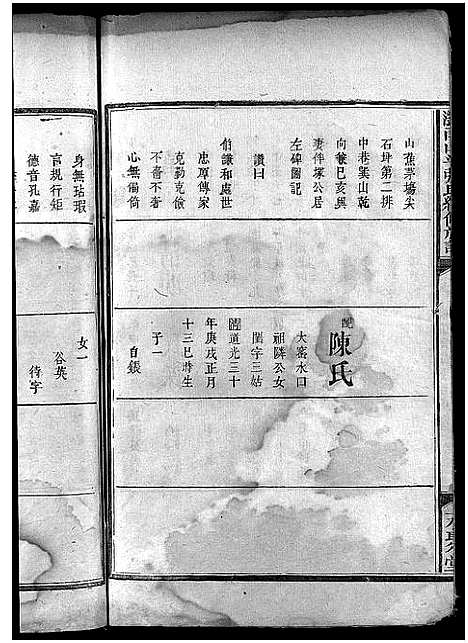 山蕉茅塲尖
石坪第二排
中巷巽山乾
向兼巳亥與
妻伴塚公居
左碑圖記
讚曰
伯謙和處世
忠厚傳家
克勤克儉
不嗇不奢
心無偏倚
配
陳氏
大窰水口
祖隣公女
閨字三姑
道光三十
年庚戌正月
十三巳時生
子一
自銀
身無玷瑕
言規行矩
德音孔嘉
女一
谷英
待字